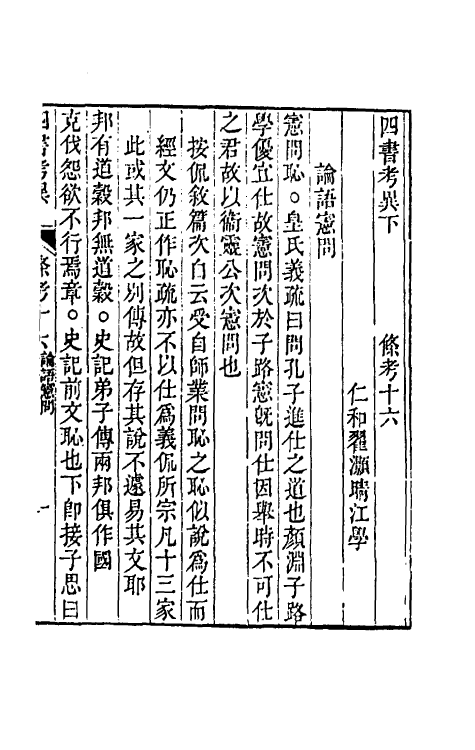 四書考異下　　　條考十六
仁和翟灝晴江學
論語憲問
憲問恥。皇氏義疏曰問孔子進仕之道也顏淵子路
學優宜仕故憲問次於子路憲旣問仕因舉時不可仕
之君故以衞靈公次憲問也
按侃敘篇次自云受自師業問恥之恥似說爲仕而
經文仍正作恥疏亦不以仕爲義侃所宗凡十三家
此或其一家之别傳故但存其說不遽易其文耶
邦有道穀邦無道穀。史記弟子傳兩邦俱作國
克伐怨欲不行焉章。史記前文恥也下卽接子思曰
四書考異　條考十六　論語憲問　一